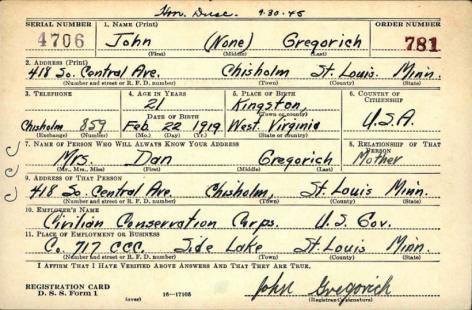 Hon. Disc. 9-30-45
SERIAL NUMBER 1. NAME (Print) ORDER NUMBER
4706 John (None) Gregorich 781
(First) (Middle) (Last)
2. ADDRESS (Print)
418 So. Central Ave. Chisholm St. Louis Minn.
(Number and street or R. F. D. number) (Town) (County) (State)
3. TELEPHONE 4. AGE IN YEARS 5. PLACE OF BIRTH 6. COUNTRY OF CITIZENSHIP
21 Kingston,
DATE OF BIRTH (Town or county)
Chisholm 859 Feb. 22 1919 West Virginia U.S.A.
(Exchange) (Number) (Mo.) (Day) (Yr.) (State or country)
7. NAME OF PERSON WHO WILL ALWAYS KNOW YOUR ADDRESS 8. RELATIONSHIP OF THAT PERSON
Mrs. Dan Gregorich Mother
(Mr., Mrs., Miss) (First) (Middle) (Last)
9. ADDRESS OF THAT PERSON
418 So. Central Ave. Chisholm, St. Louis Minn.
(Number and street or R. F. D. number) (Town) (County) (State)
10. EMPLOYER'S NAME
Civilian Conservation Corps. U.S. Gov.
11. PLACE OF EMPLOYMENT OR BUSINESS
Co. 717 CCC. Side Lake St. Louis Minn.
(Number and street or R. F. D. number) (Town) (County) (State)
I AFFIRM THAT I HAVE VERIFIED ABOVE ANSWERS AND THAT THEY ARE TRUE.
John Gregorich
REGISTRATION CARD
D. S. S. Form 1 (over) 16—17105 (Registrant's signature)